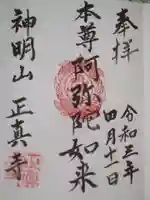 奉拝
令和三年
四月十一日
本尊阿弥陀如来
神明山
正真寺